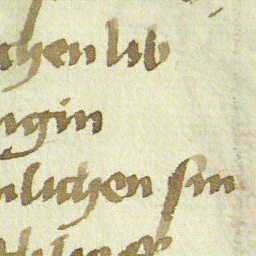 chen lib
ngin
nlichen sin